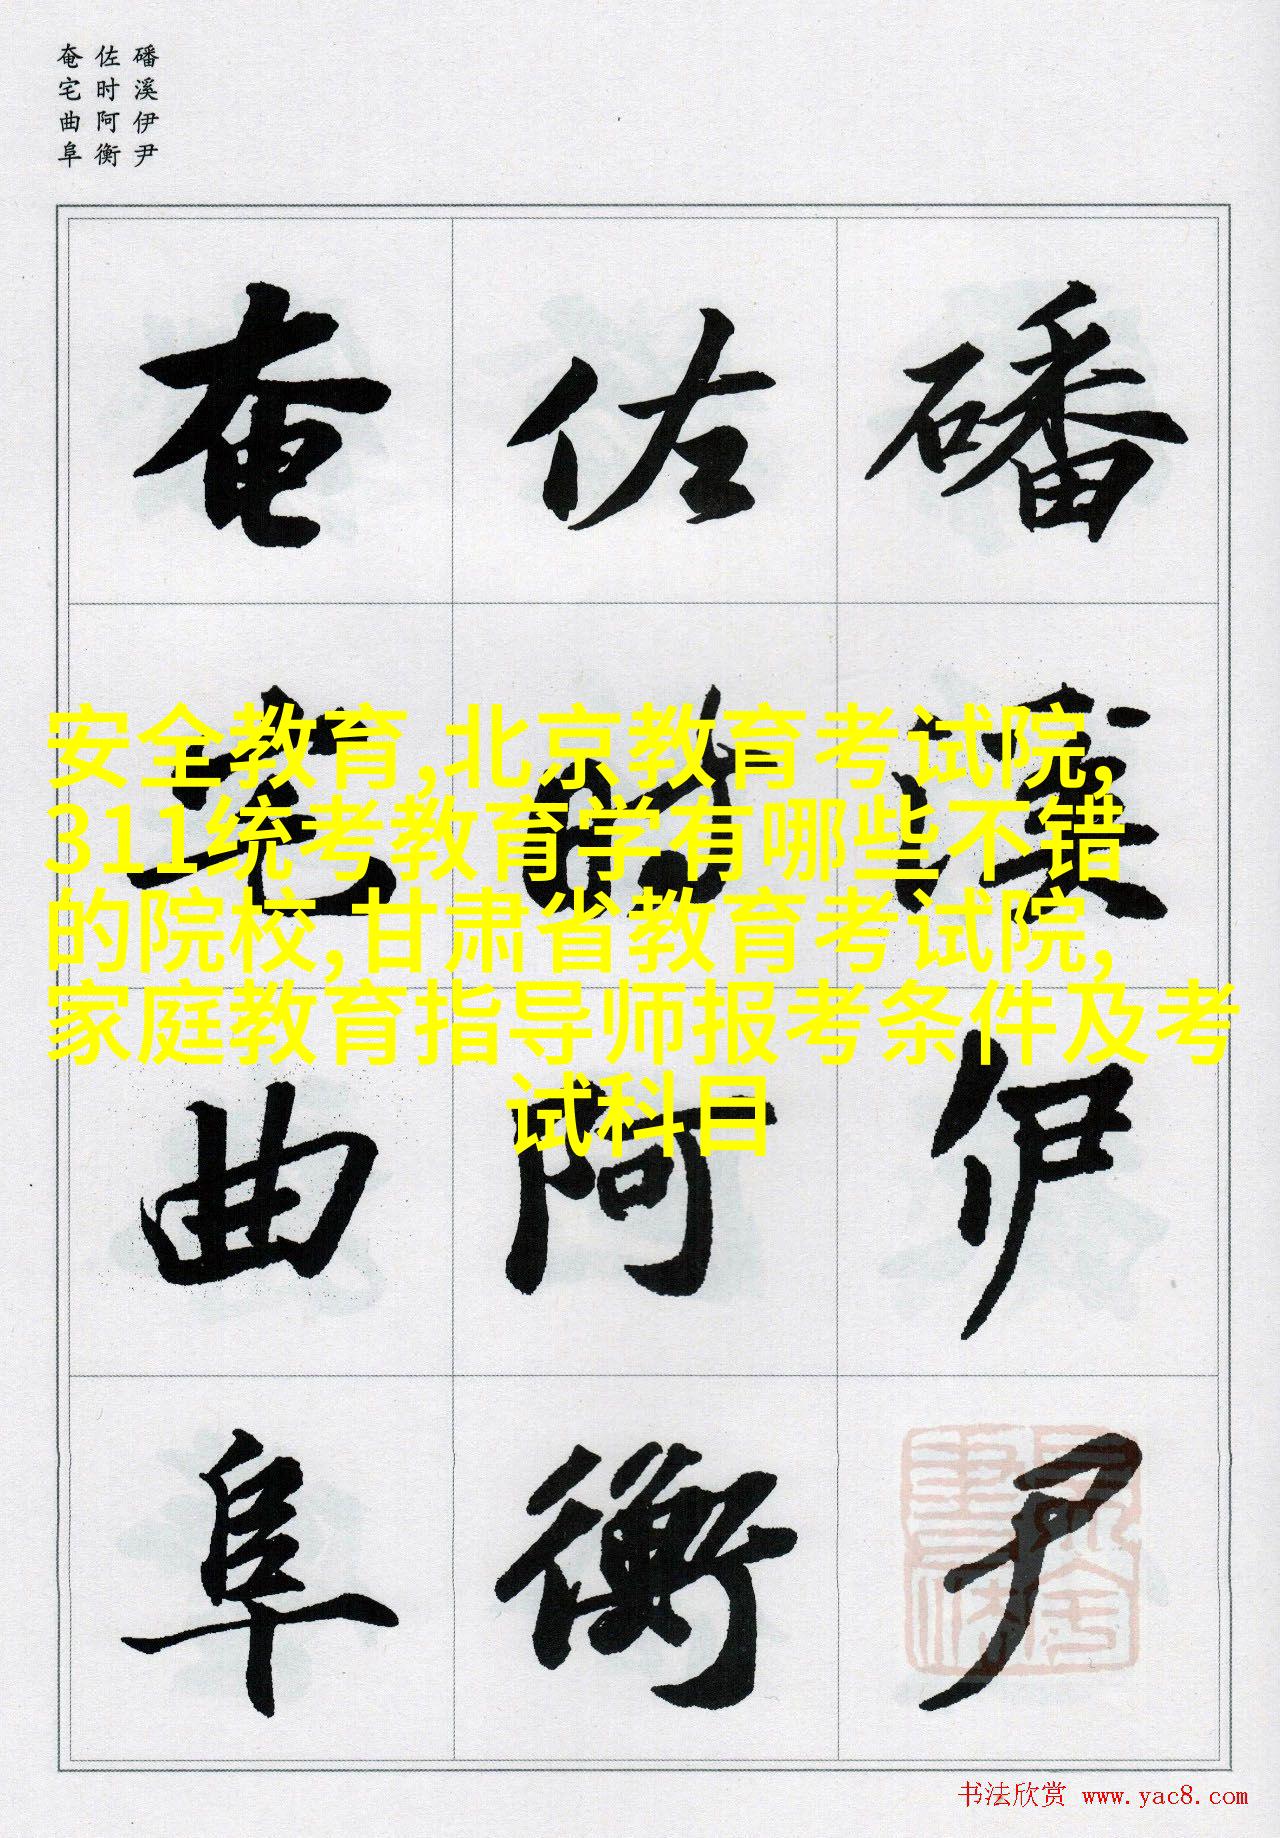 磻溪伊尹
佐时阿衡
奄宅曲阜
磻溪伊尹
佐时阿衡
奄宅曲阜
安全教育,北京教育考试院,
311统考教育学有哪些不错
的院校,甘肃省教育考试院,
家庭教育指导师报考条件及考
试科目
书法欣赏 www.yac8.com